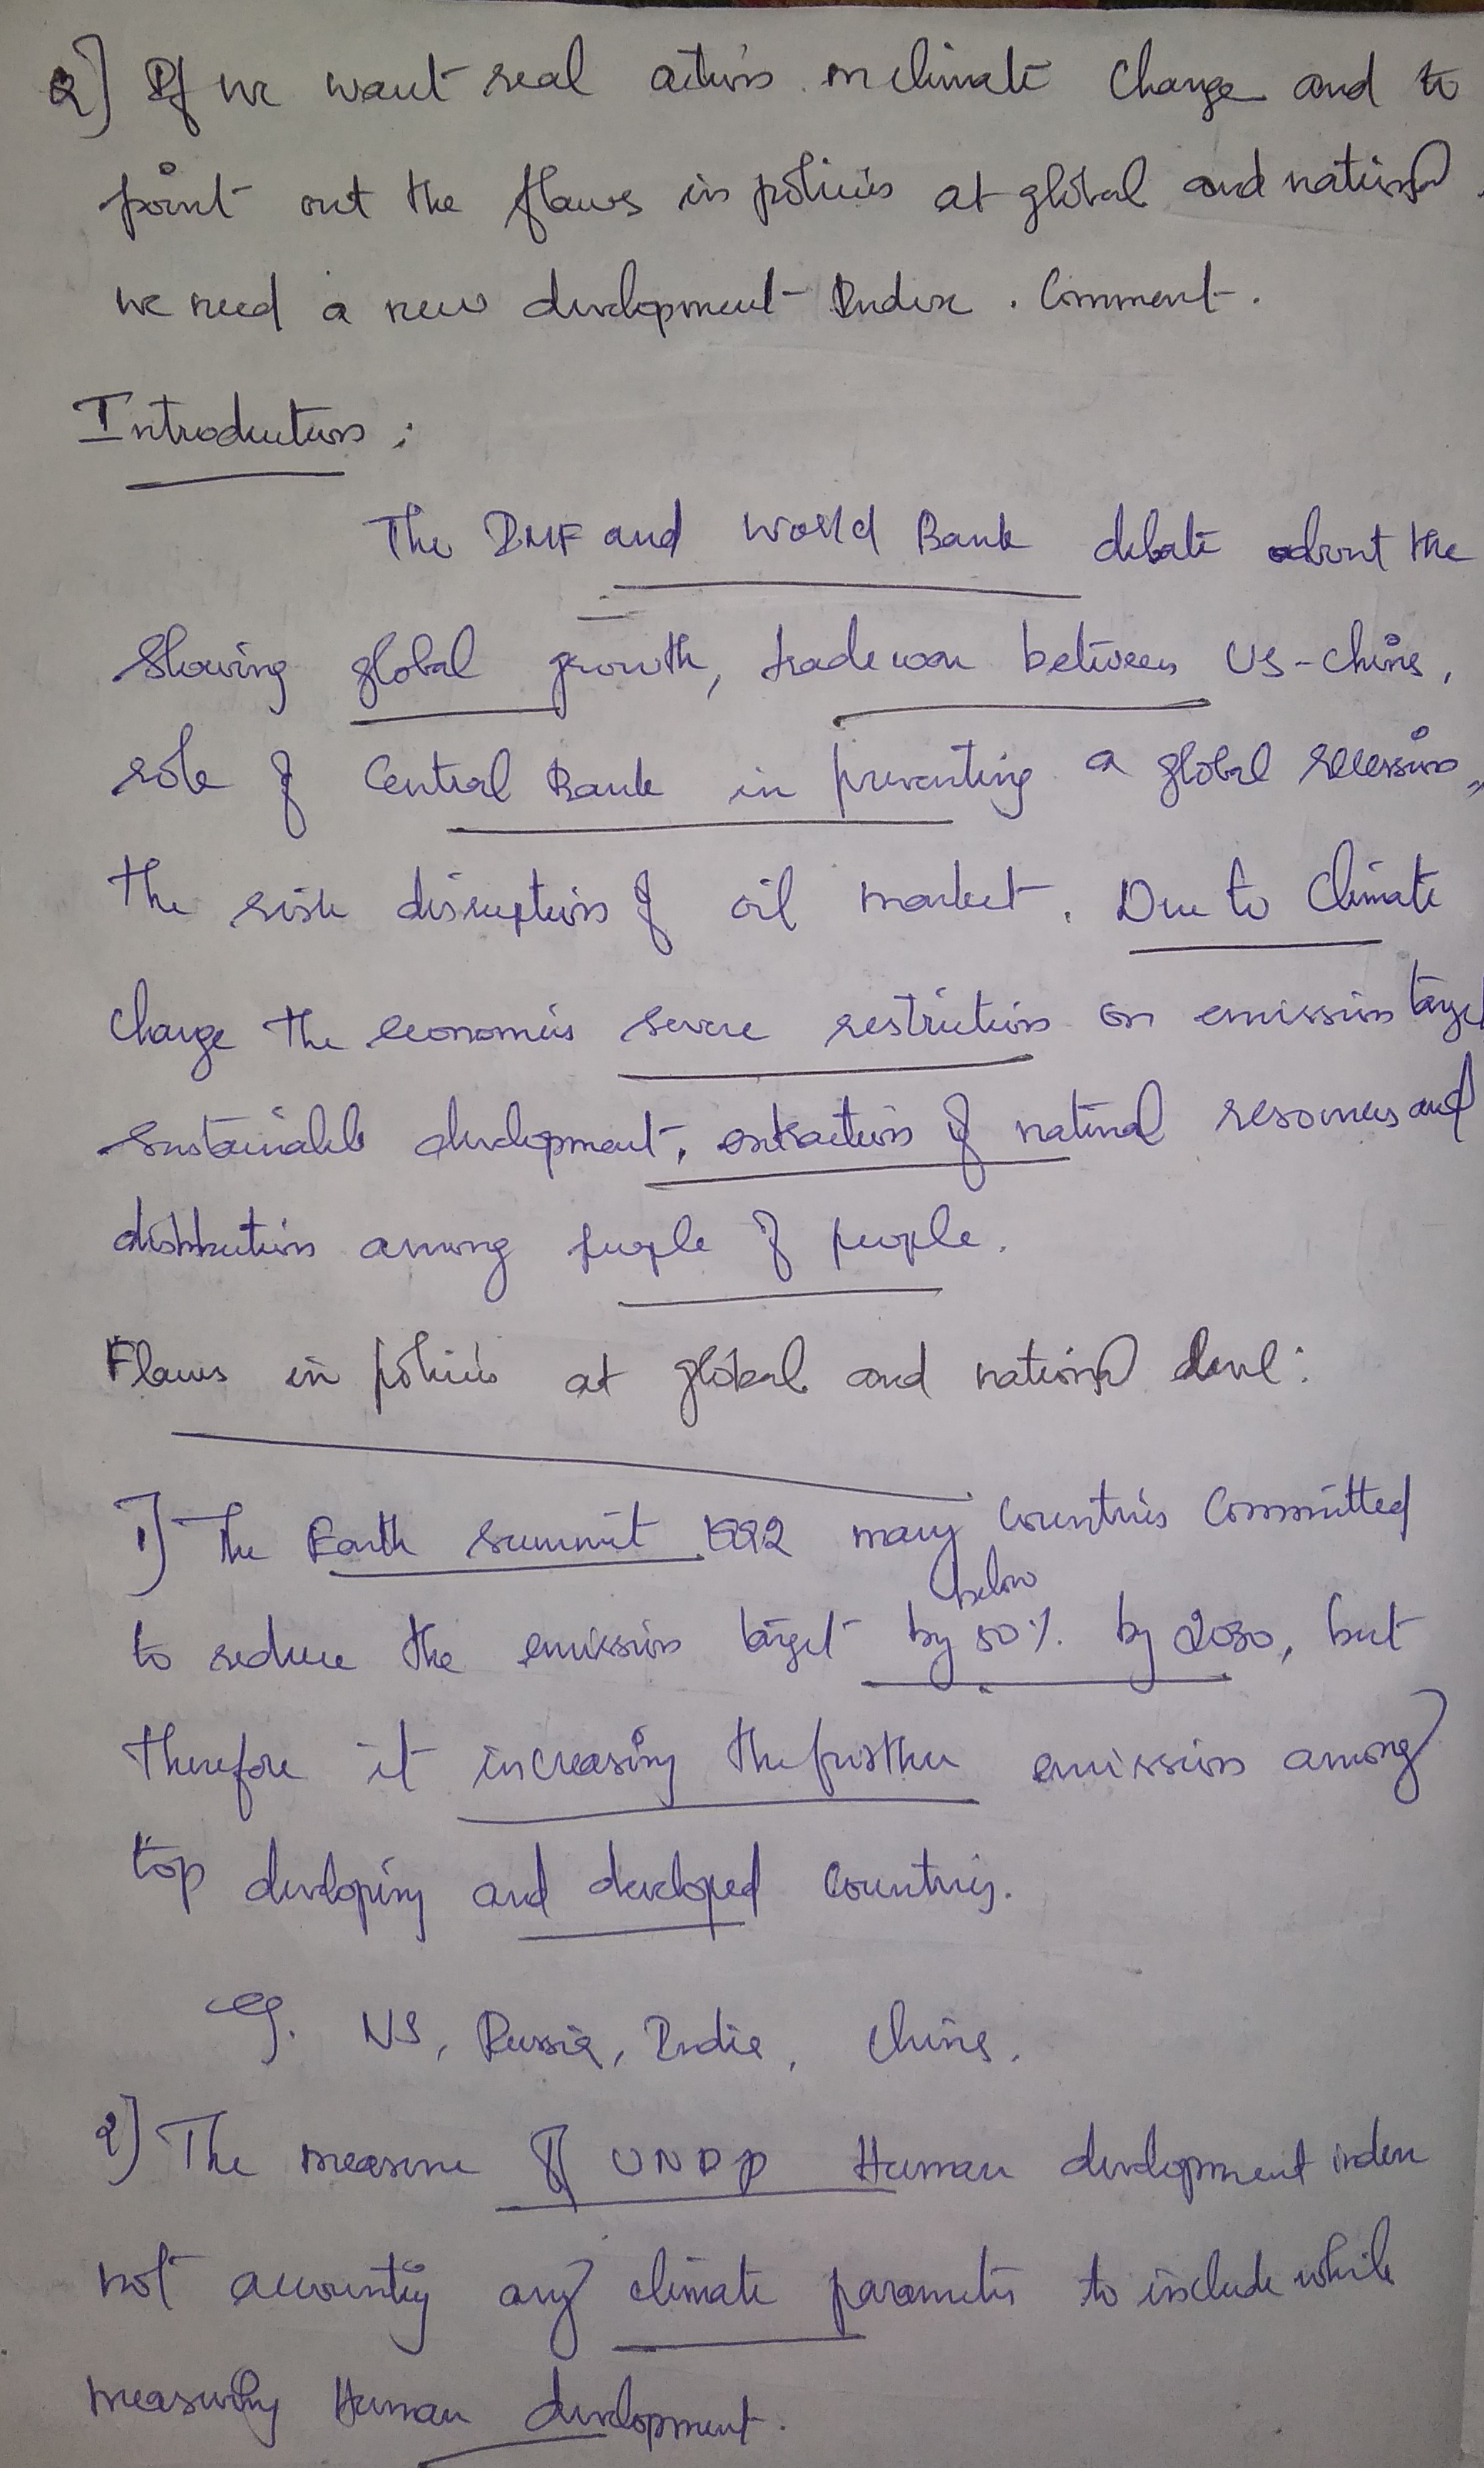 2] If we want real action on climate change and to
point out the flaws in policies at global and national
we need a new development Index. Comment.
Introduction:
The IMF and World Bank debate about the
slowing global growth, trade war between US-China,
role of Central Bank in preventing a global recession,
the risk disruption of oil market. Due to Climate
change the economies severe restriction on emission target
sustainable development, extraction of natural resources and
distribution among people of people.
Flaws in policies at global and national level:
1) The Earth summit 1992 many countries committed
below
to reduce the emission target by 50% by 2030, but
therefore it increasing the further emission among
top developing and developed countries.
eg. US, Russia, India, China.
2) The measure of UNDP Human development index
not accounting any climate parameters to include while
measuring Human development.